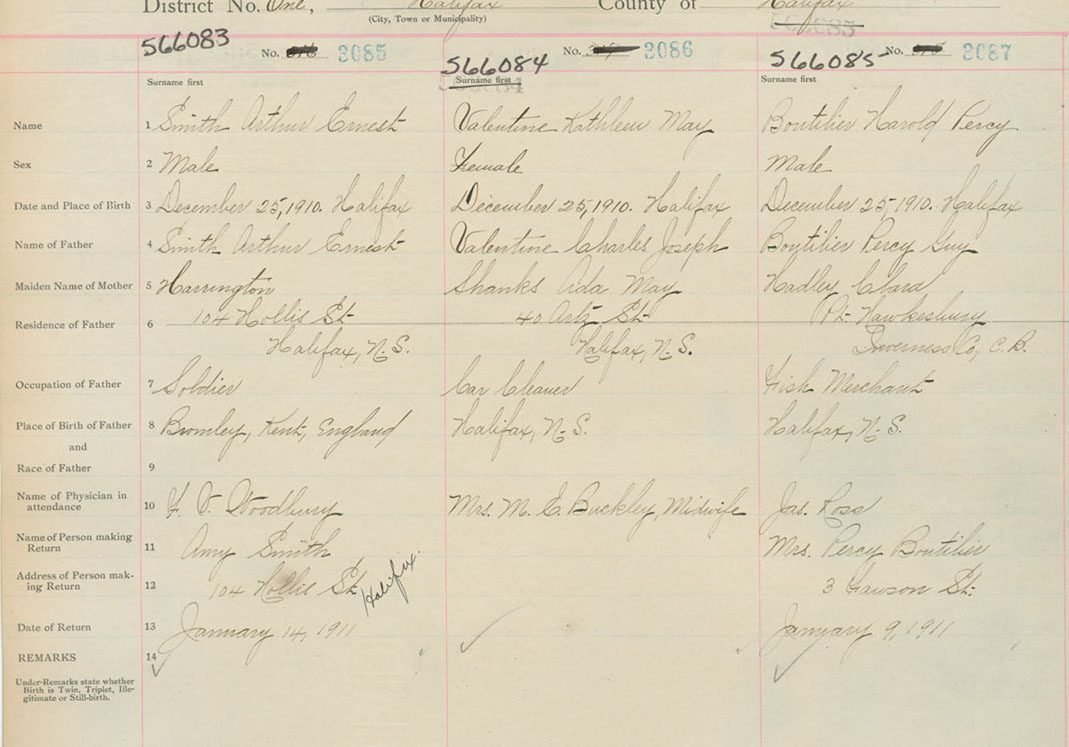 District No. One, Halifax County of Halifax
(City, Town or Municipality)
566083 No. 3085 566084 No. 3086 566085 No. 3087
Surname first Surname first Surname first
Name 1 Smith Arthur Ernest Valentine Kathleen May Boutilier Harold Percy
Sex 2 Male Female Male
Date and Place of Birth 3 December 25, 1910. Halifax December 25, 1910. Halifax December 25 1910. Halifax
Name of Father 4 Smith Arthur Ernest Valentine Charles Joseph Boutilier Percy Guy
Maiden Name of Mother 5 Harrington Shanks Ada May Hadley Clara
Residence of Father 6 104 Hollis St 40 St Pt. Hawkesbury
Halifax, N.S. Halifax, N.S. Inverness Co, C.B.
Occupation of Father 7 Soldier Car Cleaner Fish Merchant
Place of Birth of Father 8 Bromley, Kent, England Halifax, N.S. Halifax, N.S.
and
Race of Father 9
Name of Physician in
attendance 10 Woodbury Mrs. M. E. Buckley, Midwife Jas. Ross
Name of Person making
Return 11 Amy Smith Mrs. Percy Boutilier
Address of Person mak-
ing Return 12 104 Hollis St. Halifax 3 St.
Date of Return 13 January 14, 1911 January 9, 1911
REMARKS 14
Under Remarks state whether
Birth is Twin, Triplet, Ille-
gitimate or Still-birth.